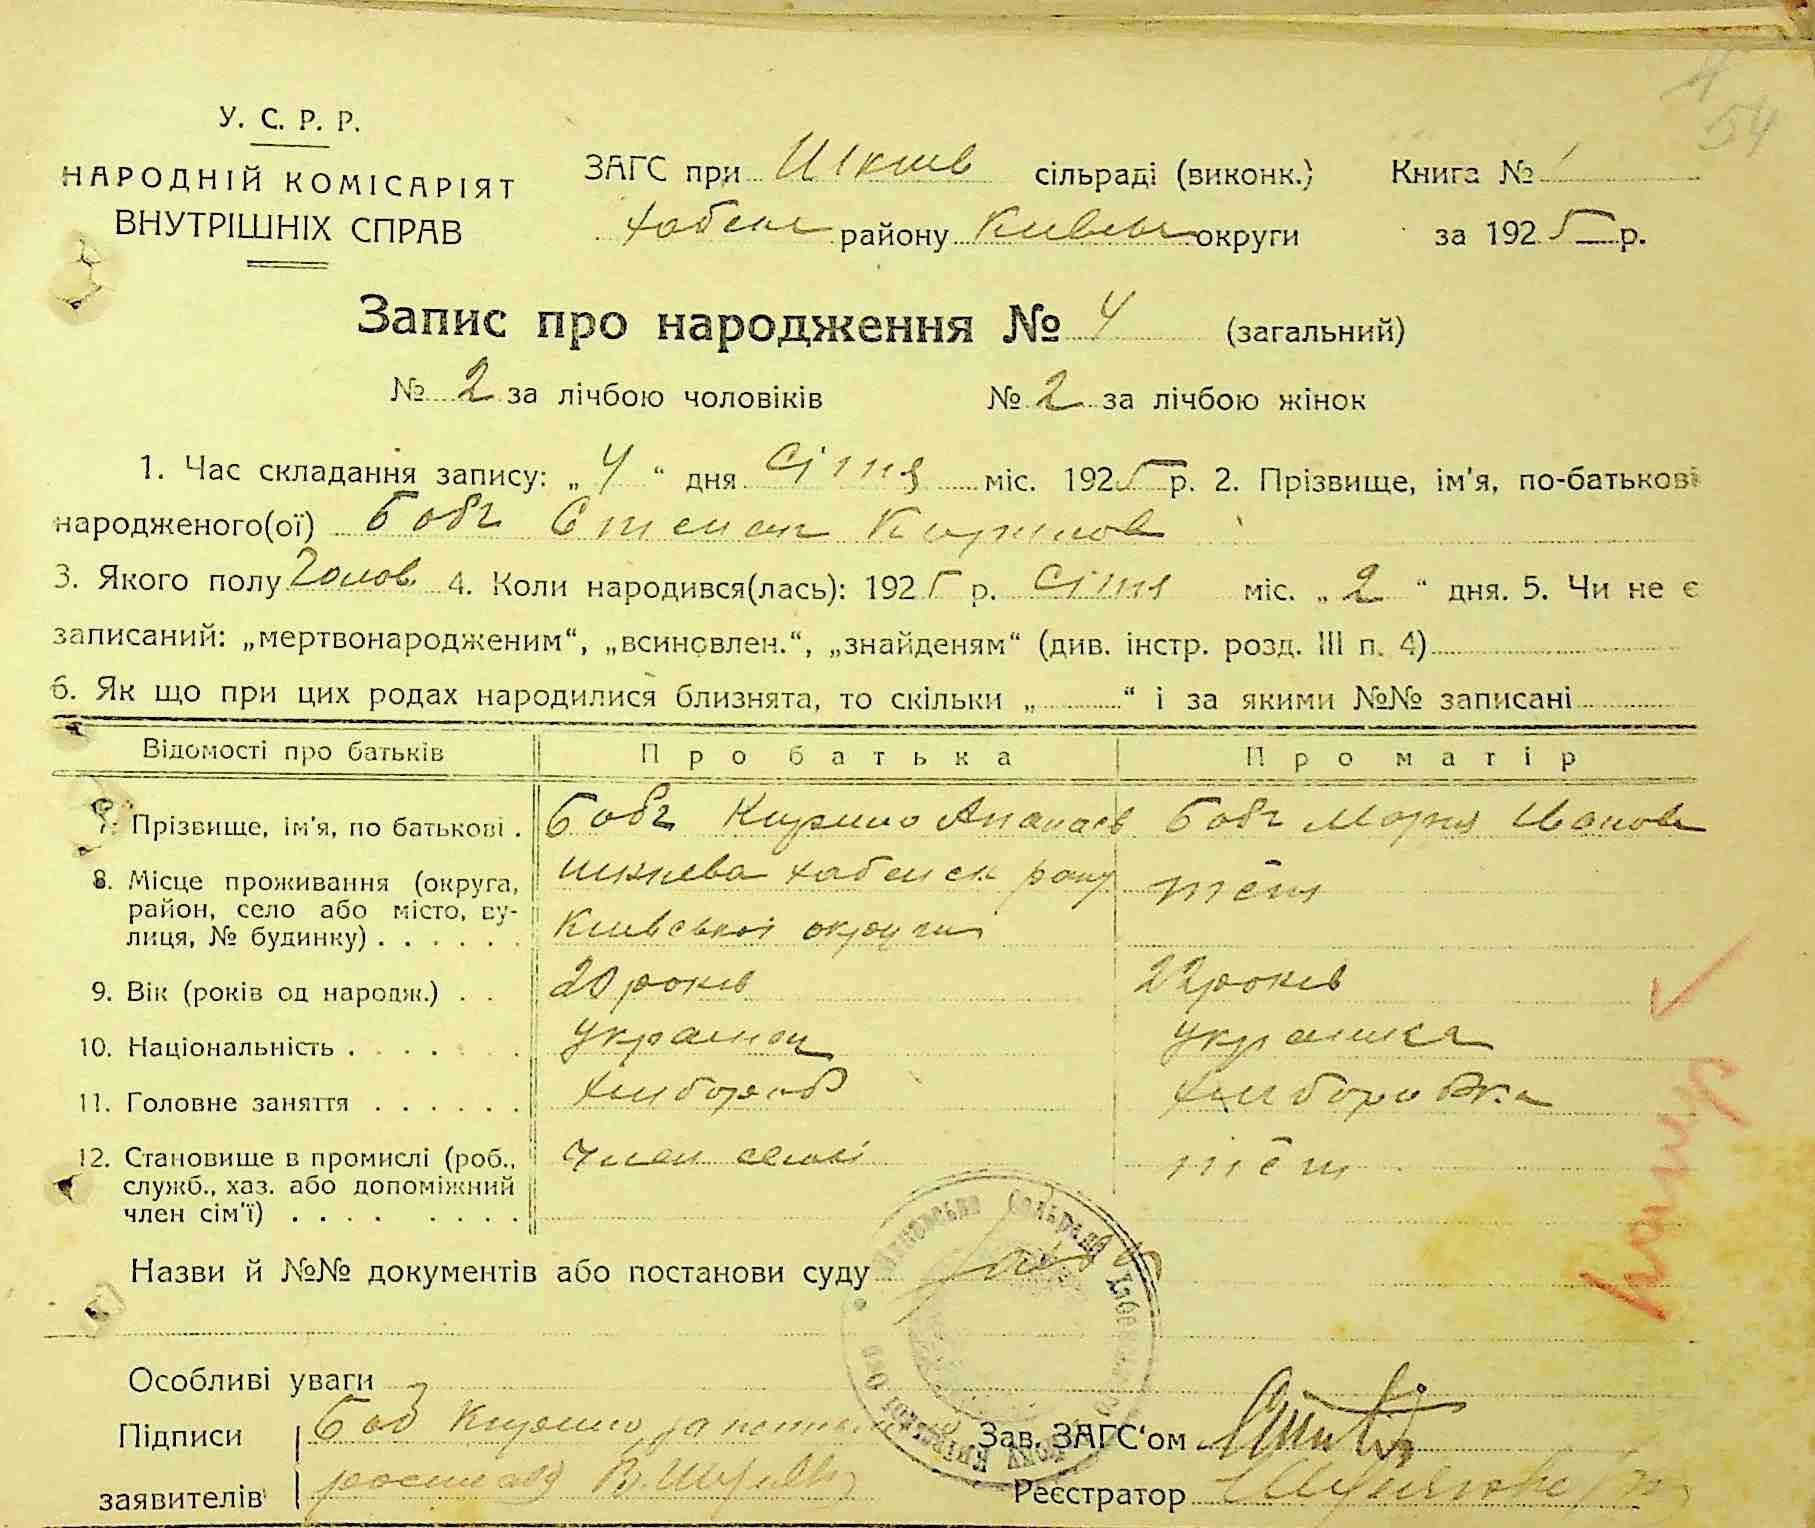 54
У. С. Р. Р.
НАРОДНІЙ КОМІСАРІЯТ
ВНУТРІШНІХ СПРАВ
ЗАГС при Шкнів сільраді (виконк.) Книга № 1
Хабенс району Київськ округи за 1925 р.
Запис про народження № 4 (загальний)
№ 2 за лічбою чоловіків № 2 за лічбою жінок
1. Час складання запису: „4“ дня Січня міс. 1925 р. 2. Прізвище, ім'я, по-батькові
народженого(ої) Бобг Степан Кирилов
3. Якого полу Чолов. 4. Коли народився(лась): 1925 р. Січня міс. „2“ дня. 5. Чи не є
записаний: „мертвонародженим“, „всиновлен.“, „знайденям“ (див. інстр. розд. III п. 4)
6. Як що при цих родах народилися близнята, то скільки „ “ і за якими №№ записані
Відомості про батьків Про батька Про матір
7. Прізвище, ім'я, по батькові . Бобг Кирило Апанасів Бобг Марія Іванов
8. Місце проживання (округа, район, село або місто, вулиця, № будинку) . . . . . . Хабенськ рону теж
Київської округи
9. Вік (років од народж.) . . 20 років 22 років
10. Національність . . . . . . українец українка
11. Головне заняття . . . . . . хлібороб хліборобка
12. Становище в промислі (роб., служб., хаз. або допоміжний член сім'ї) . . . . . . . . член семї теж
Назви й №№ документів або постанови суду
Особливі уваги
Підписи Боб Кирило
заявителів
Зав. ЗАГС'ом
Реєстратор